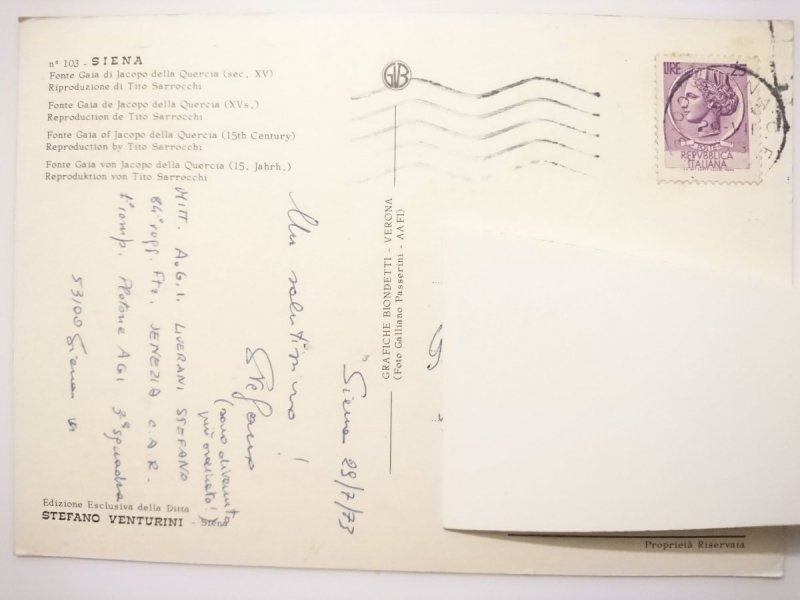 n° 103 - SIENA
Fonte Gaia di Jacopo della Quercia (sec. XV)
Riproduzione di Tito Sarrocchi
Fonte Gaia de Jacopo della Quercia (XVs.)
Reproduction de Tito Sarrocchi
Fonte Gaia of Jacopo della Quercia (15th Century)
Reproduction by Tito Sarrocchi
Fonte Gaia von Jacopo della Quercia (15. Jahrh.)
Reproduktion von Tito Sarrocchi
GVB
LIRE 25
POSTE
REPVBBLICA
ITALIANA
Siena 29/7/73
Un salutissimo!
Stefano
(sono diventato
più ordinato!)
MITT. A.G.I. LIVERANI STEFANO
84° regg. Ftr. VENEZIA C.A.R.
1° comp. Plotone AGI 3ª squadra
53100 Siena
GRAFICHE BIONDETTI - VERONA
(Foto Galliano Passerini - AAFI)
Edizione Esclusiva della Ditta
STEFANO VENTURINI - Siena
Proprietà Riservata